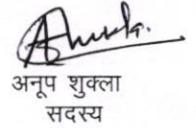 अनूप शुक्ला
सदस्य